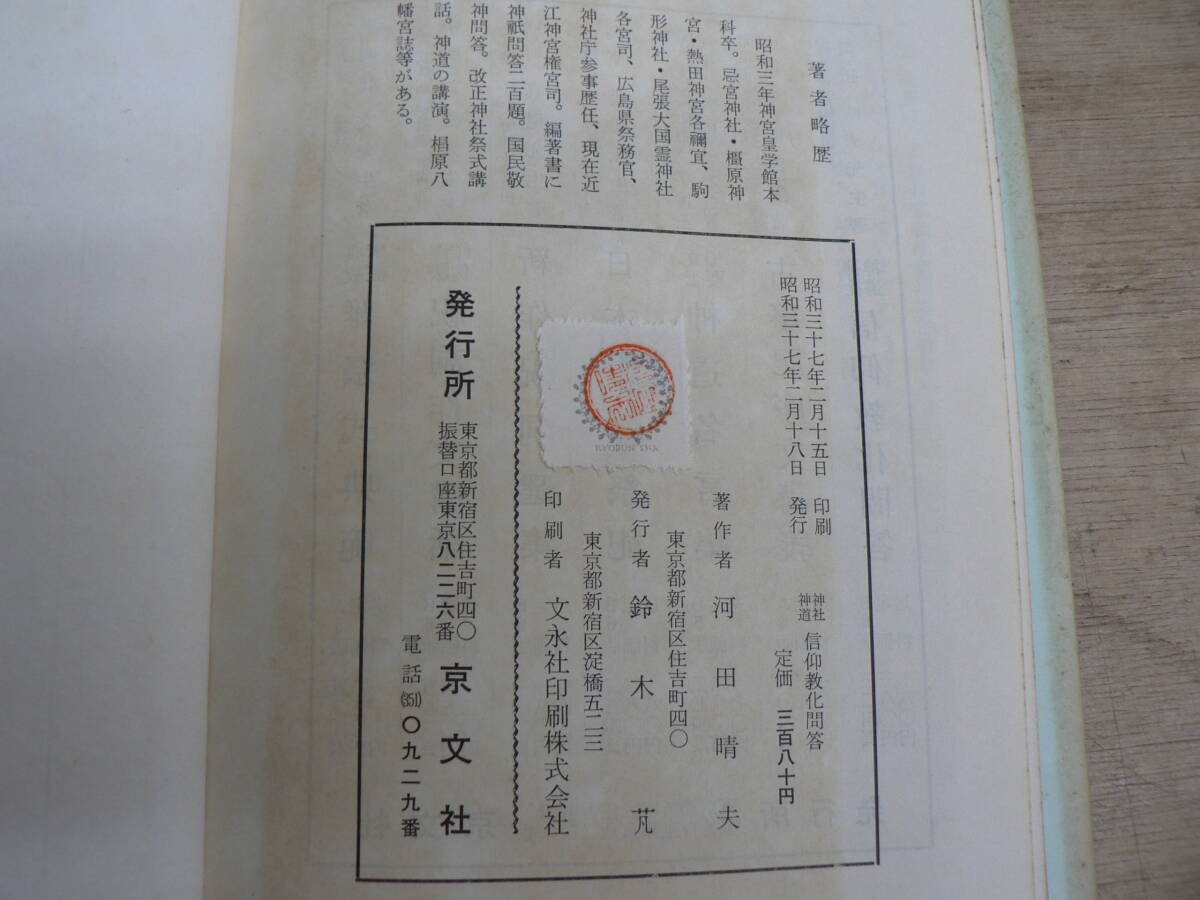 著者略歴
昭和三年神宮皇学館本
科卒。忌宮神社・橿原神
宮・熱田神宮各禰宜、駒
形神社・尾張大国霊神社
各宮司、広島県祭務官、
神社庁参事歴任、現在近
江神宮権宮司。編著書に
神祇問答二百題。国民敬
神問答。改正神社祭式講
話。神道の講演。椙原八
幡宮誌等がある。
昭和三十七年二月十五日 印刷
昭和三十七年二月十八日 発行
神社神道 信仰教化問答
定価 三百八十円
著作者 河田晴夫
東京都新宿区住吉町四〇
発行者 鈴木芃
東京都新宿区淀橋五二三
印刷者 文永社印刷株式会社
KYOBUN SHA
発行所 京文社
東京都新宿区住吉町四〇
振替口座東京八二二六番
電話(351)〇九二九番